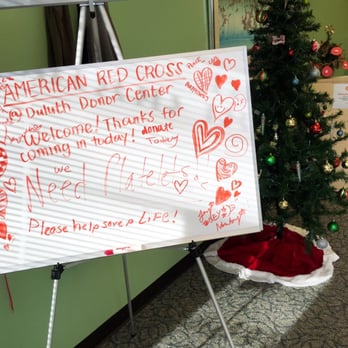 AMERICAN RED CROSS
@ Duluth Donor Center
Welcome! Thanks for
coming in today! donate
Today
we
Need Platelets
Please help save a LiFE!